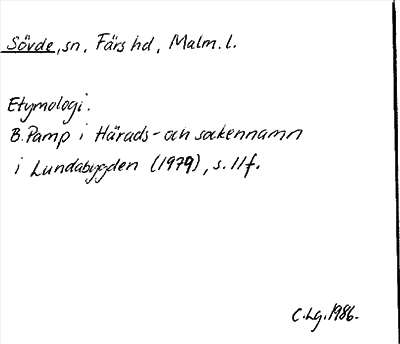 Sövde, sn, Färs hd, Malm. l.
Etymologi.
B. Pamp i Härads- och sockennamn
i Lundabygden (1979), s. 11f.
C. Lg. 1986.